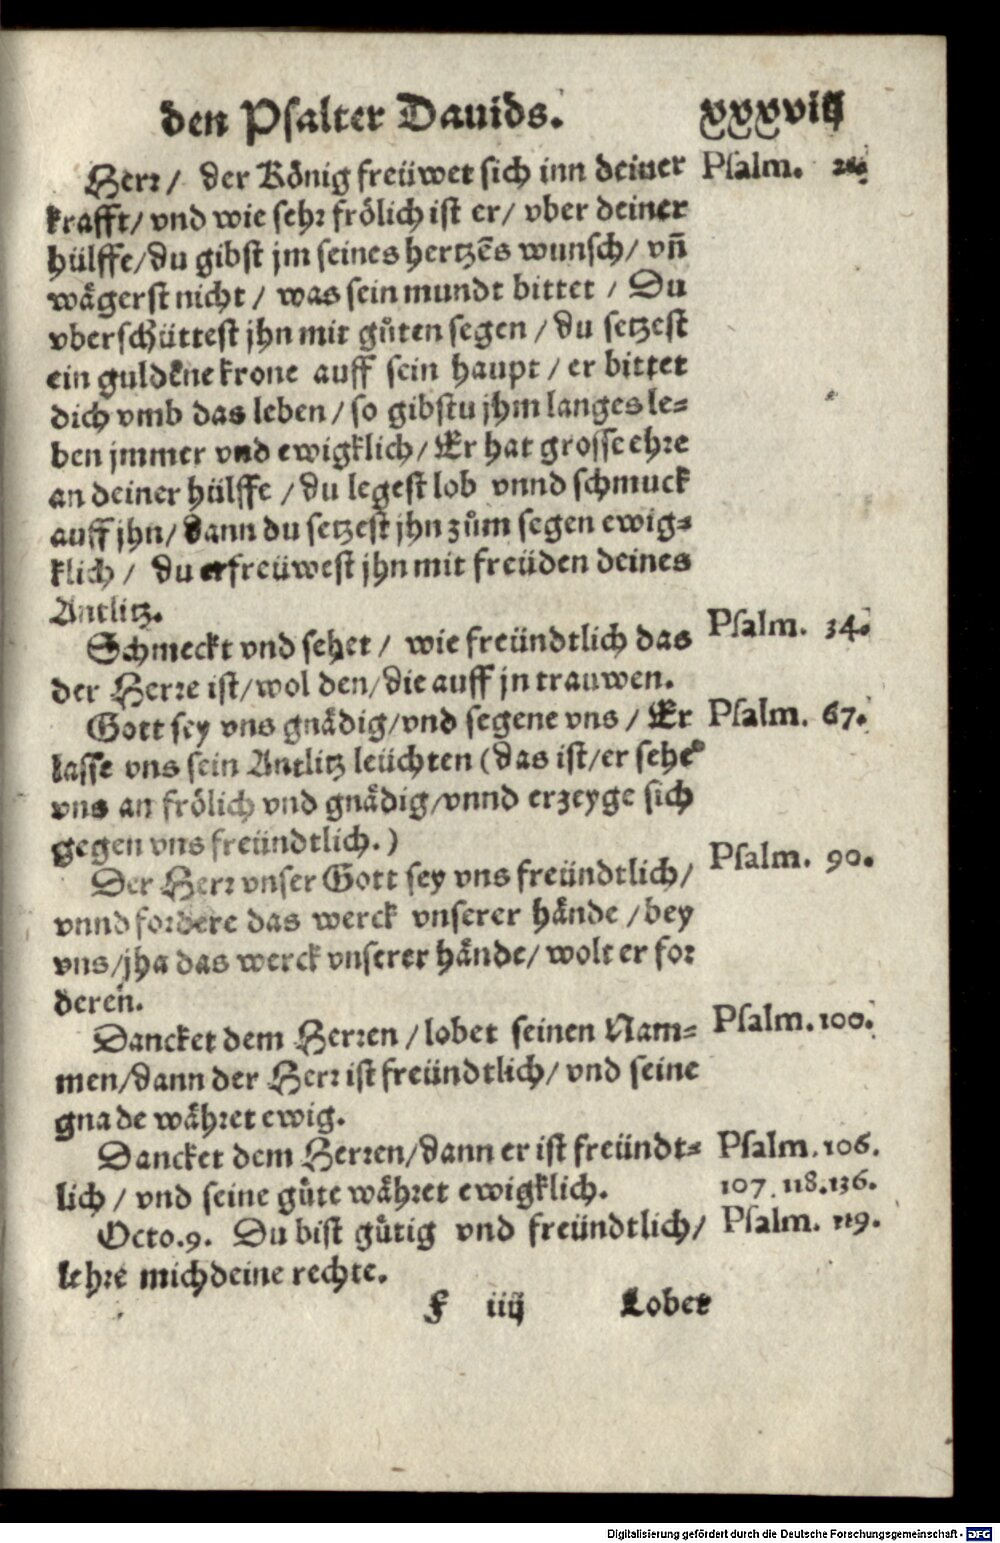 den Psalter Dauids. xxxviij
Herr / der König freüwet sich inn deiner Psalm.
krafft / vnd wie sehr frölich ist er / vber deiner
hülffe / du gibst jm seines hertzēs wunsch / vñ
wägerst nicht / was sein mundt bittet / Du
vberschüttest jhn mit gůten segen / du setzest
ein guldēne krone auff sein haupt / er bittet
dich vmb das leben / so gibstu jhm langes le=
ben jmmer vnd ewigklich / Er hat grosse ehre
an deiner hülffe / du legest lob vnnd schmuck
auff jhn / dann du setzest jhn zům segen ewig=
klich / du erfreüwest jhn mit freüden deines
Antlitz.
Schmeckt vnd sehet / wie freündtlich das Psalm. 34.
der Herre ist / wol den / die auff jn trauwen.
Gott sey vns gnädig / vnd segene vns / Er Psalm. 67.
lasse vns sein Antlitz leüchten (das ist / er sehe
vns an frölich vnd gnädig / vnnd erzeyge sich
gegen vns freündtlich.)
Der Herr vnser Gott sey vns freündtlich / Psalm. 90.
vnnd fordere das werck vnserer hände / bey
vns / jha das werck vnserer hände / wolt er for
deren.
Dancket dem Herren / lobet seinen Nam= Psalm. 100.
men / dann der Herr ist freündtlich / vnd seine
gnade währet ewig.
Dancket dem Herren / dann er ist freündt= Psalm. 106.
lich / vnd seine güte währet ewigklich. 107. 118. 136.
Octo. 9. Du bist gütig vnd freündtlich / Psalm. 119.
lehre mich deine rechte.
F iiij Lobet
Digitalisierung gefördert durch die Deutsche Forschungsgemeinschaft - DFG